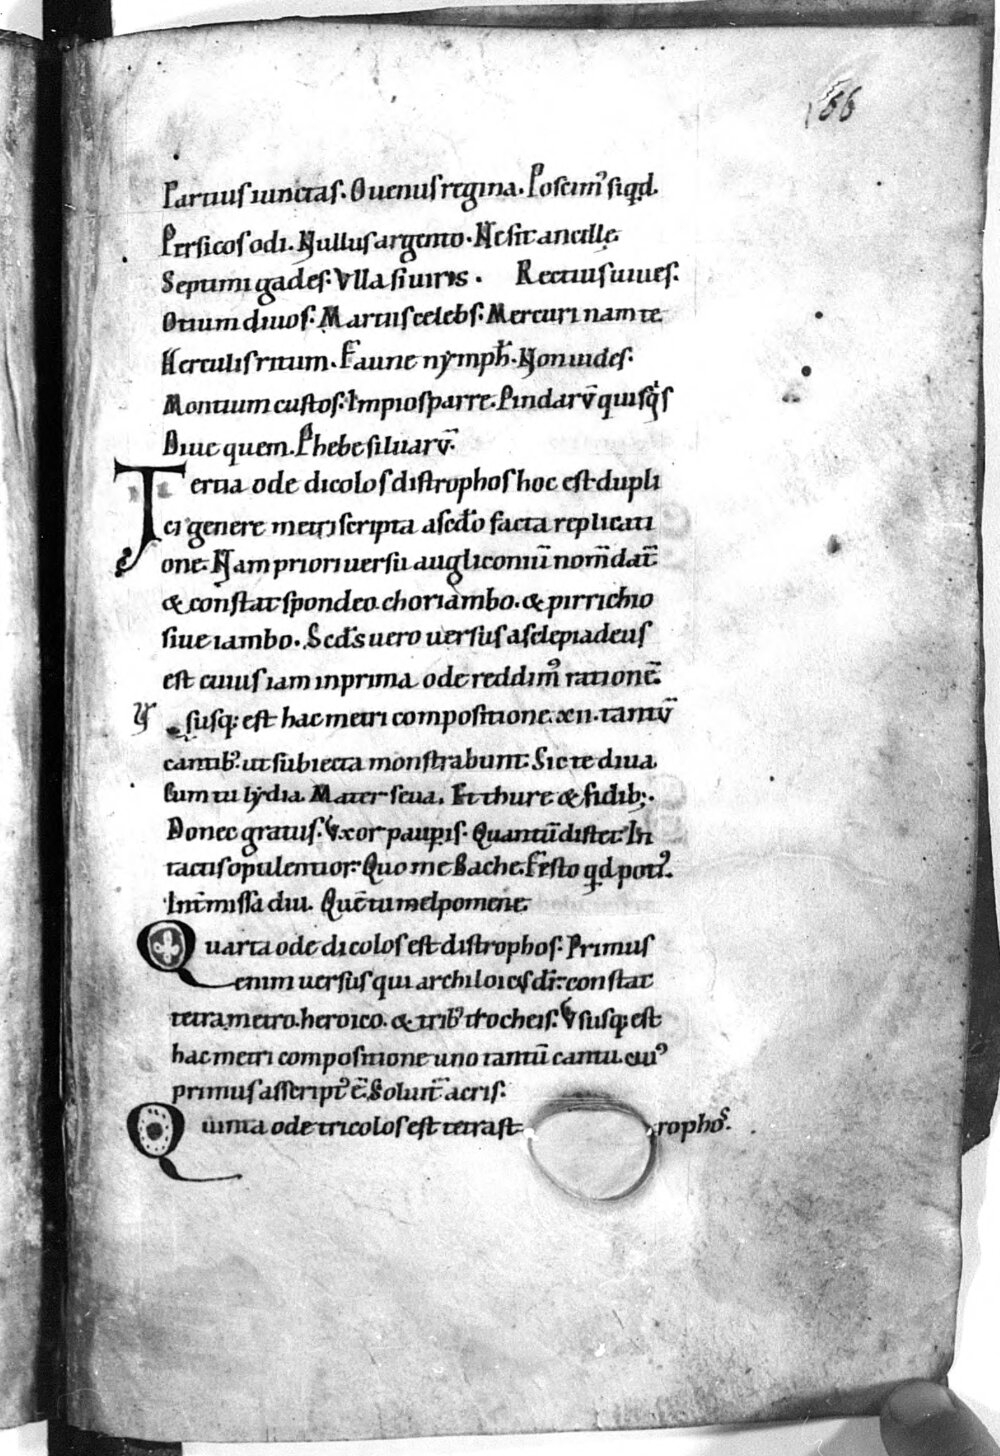 166
Partius iunctas. O uenus regina. Poscim᷒ siqd.
Persicos odi. Nullus argento. Ne sit ancille.
Septimi gades. Vlla si iuris. Rectius uiues.
Otium diuos. Martiis celebs. Mercuri nam te
Herculis ritum. Faune nymph̄. Non uides.
Montium custos. Impios parre. Pindarv̄ quisq͛s
Diue quem. Phebe siluarv̄.
Tertia ode dicolos distrophos hoc est dupli
ci genere metri scripta a scd̄o facta replicati
one. Nam priori uersu augliconiū nom̄ dat̄
& constat spondeo. choriambo. & pirrichio
siue iambo. Scd̄s uero uersus asclepiadeus
est cuius iam in prima ode reddim᷒ rationē.
Vsusq; est hac metri compositione. xii. tantv̄
cantib᷒. ut subiecta monstrabunt. Sic te diua
Cum tu lydia. Mater seua. Et thure & fidib;.
Donec gratus. Vxor paup̄is. Quantū distet In
tactis opulentior. Quo me Bache. Festo qd pot᷒.
Int̄missa diu. Quē tu melpomene.
Quarta ode dicolos est distrophos. Primus
enim uersus qui archiloic᷒s dr̄. constat
tetrametro. heroico. & trib᷒ trocheis. Vsusq; est
hac metri compositione uno tantū cantu. cui᷒
primus asscript᷒ ē. Soluit̄ acris.
Quinta ode tricolos est tetrastrophos.